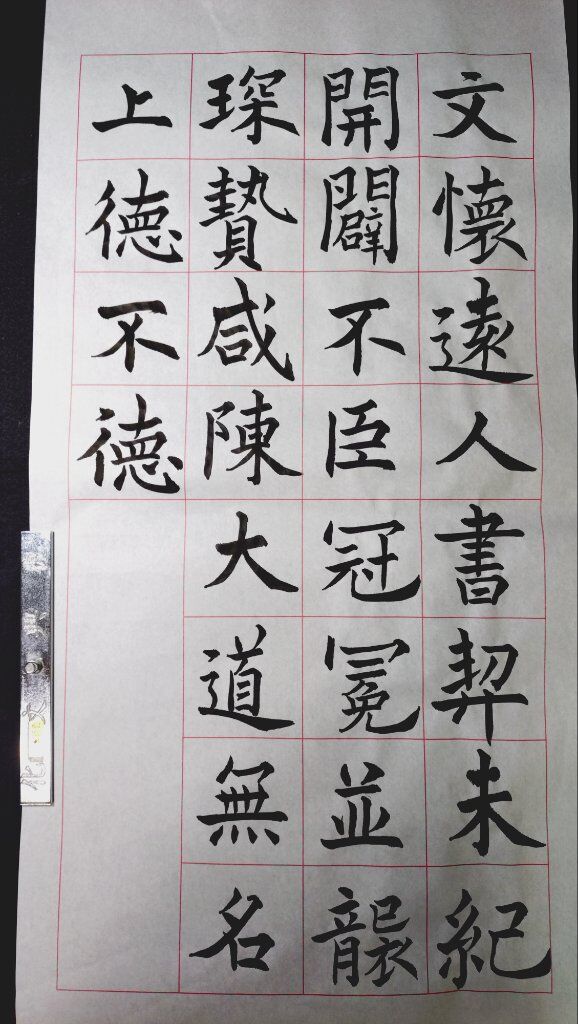 文懷遠人書契未紀
開闢不臣冠冕並襲
琛贄咸陳大道無名
上德不德